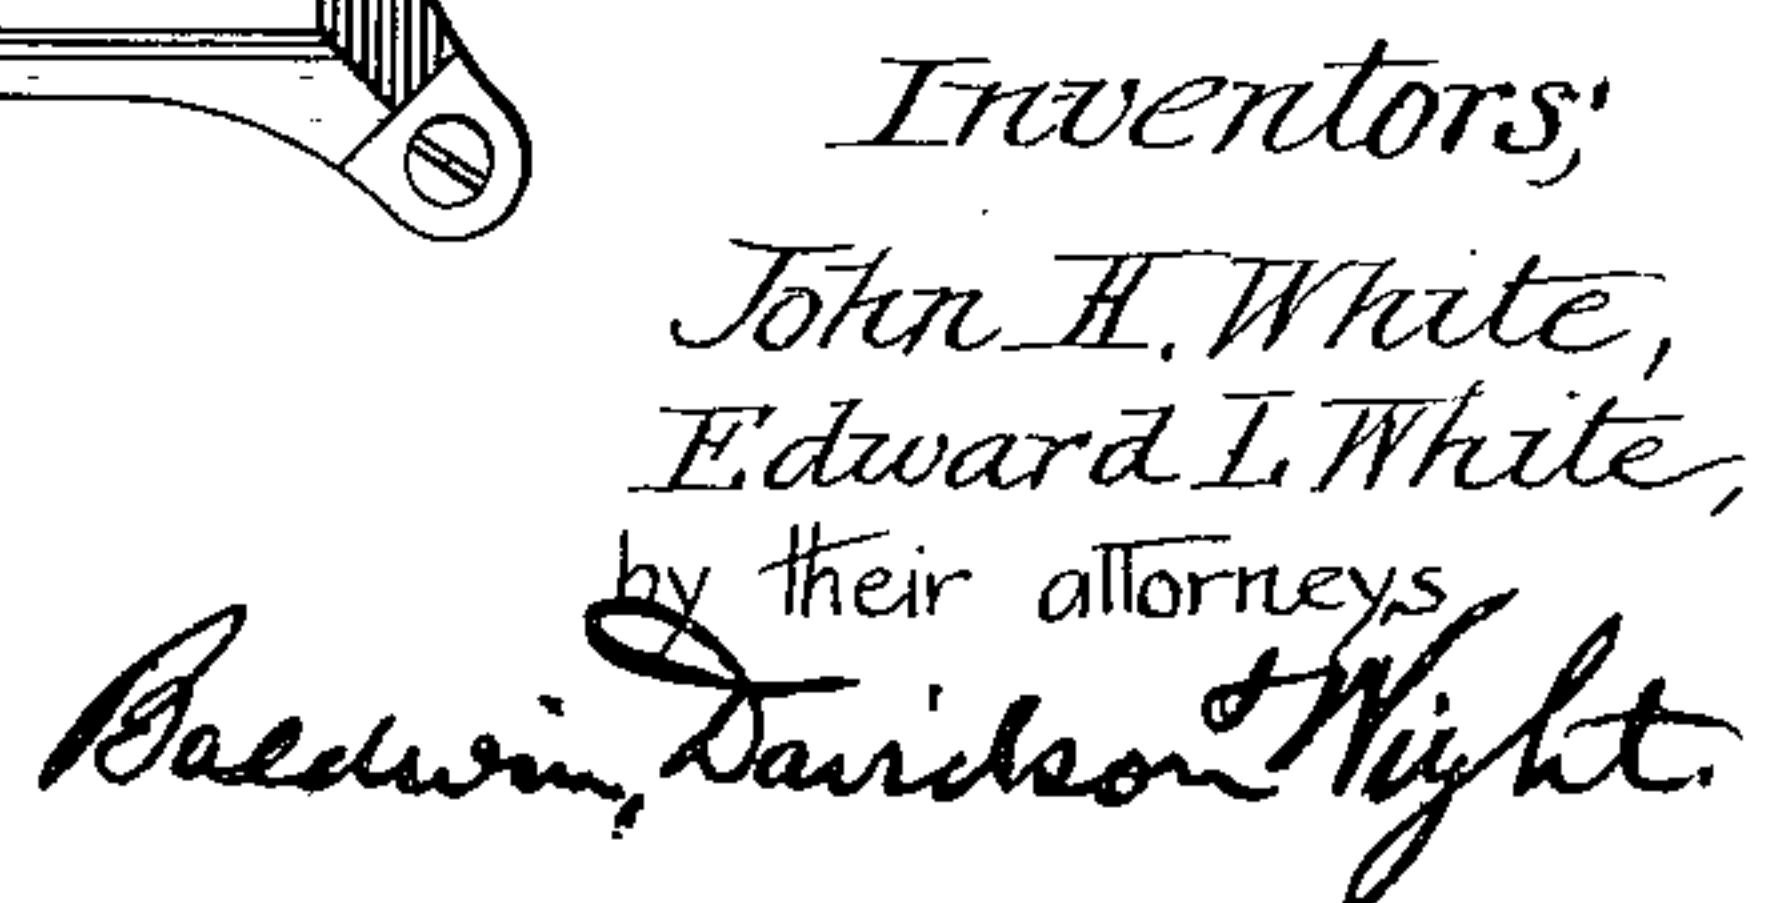 Inventors;
John H. White,
Edward I. White,
by their attorneys
Baldwin, Davidson & Wight.